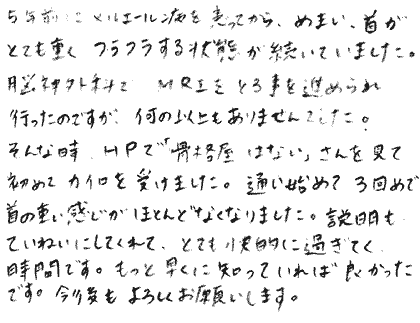 5年前にメルエール病を患ってから、めまい、首が
とても重く フラフラする状態が続いていました。
脳神外科で MRIをとる事を進められ
行ったのですが、何の以上もありませんでした。
そんな時、HPで「骨格屋 はない」さんを見て
初めて カイロを受けました。通い始めて 3回めで
首の重い感じがほとんどなくなりました。説明も
ていねいにしてくれて、とても快的に過ぎてく
時間です。もっと早くに知っていれば良かった
です。今後も よろしくお願いします。